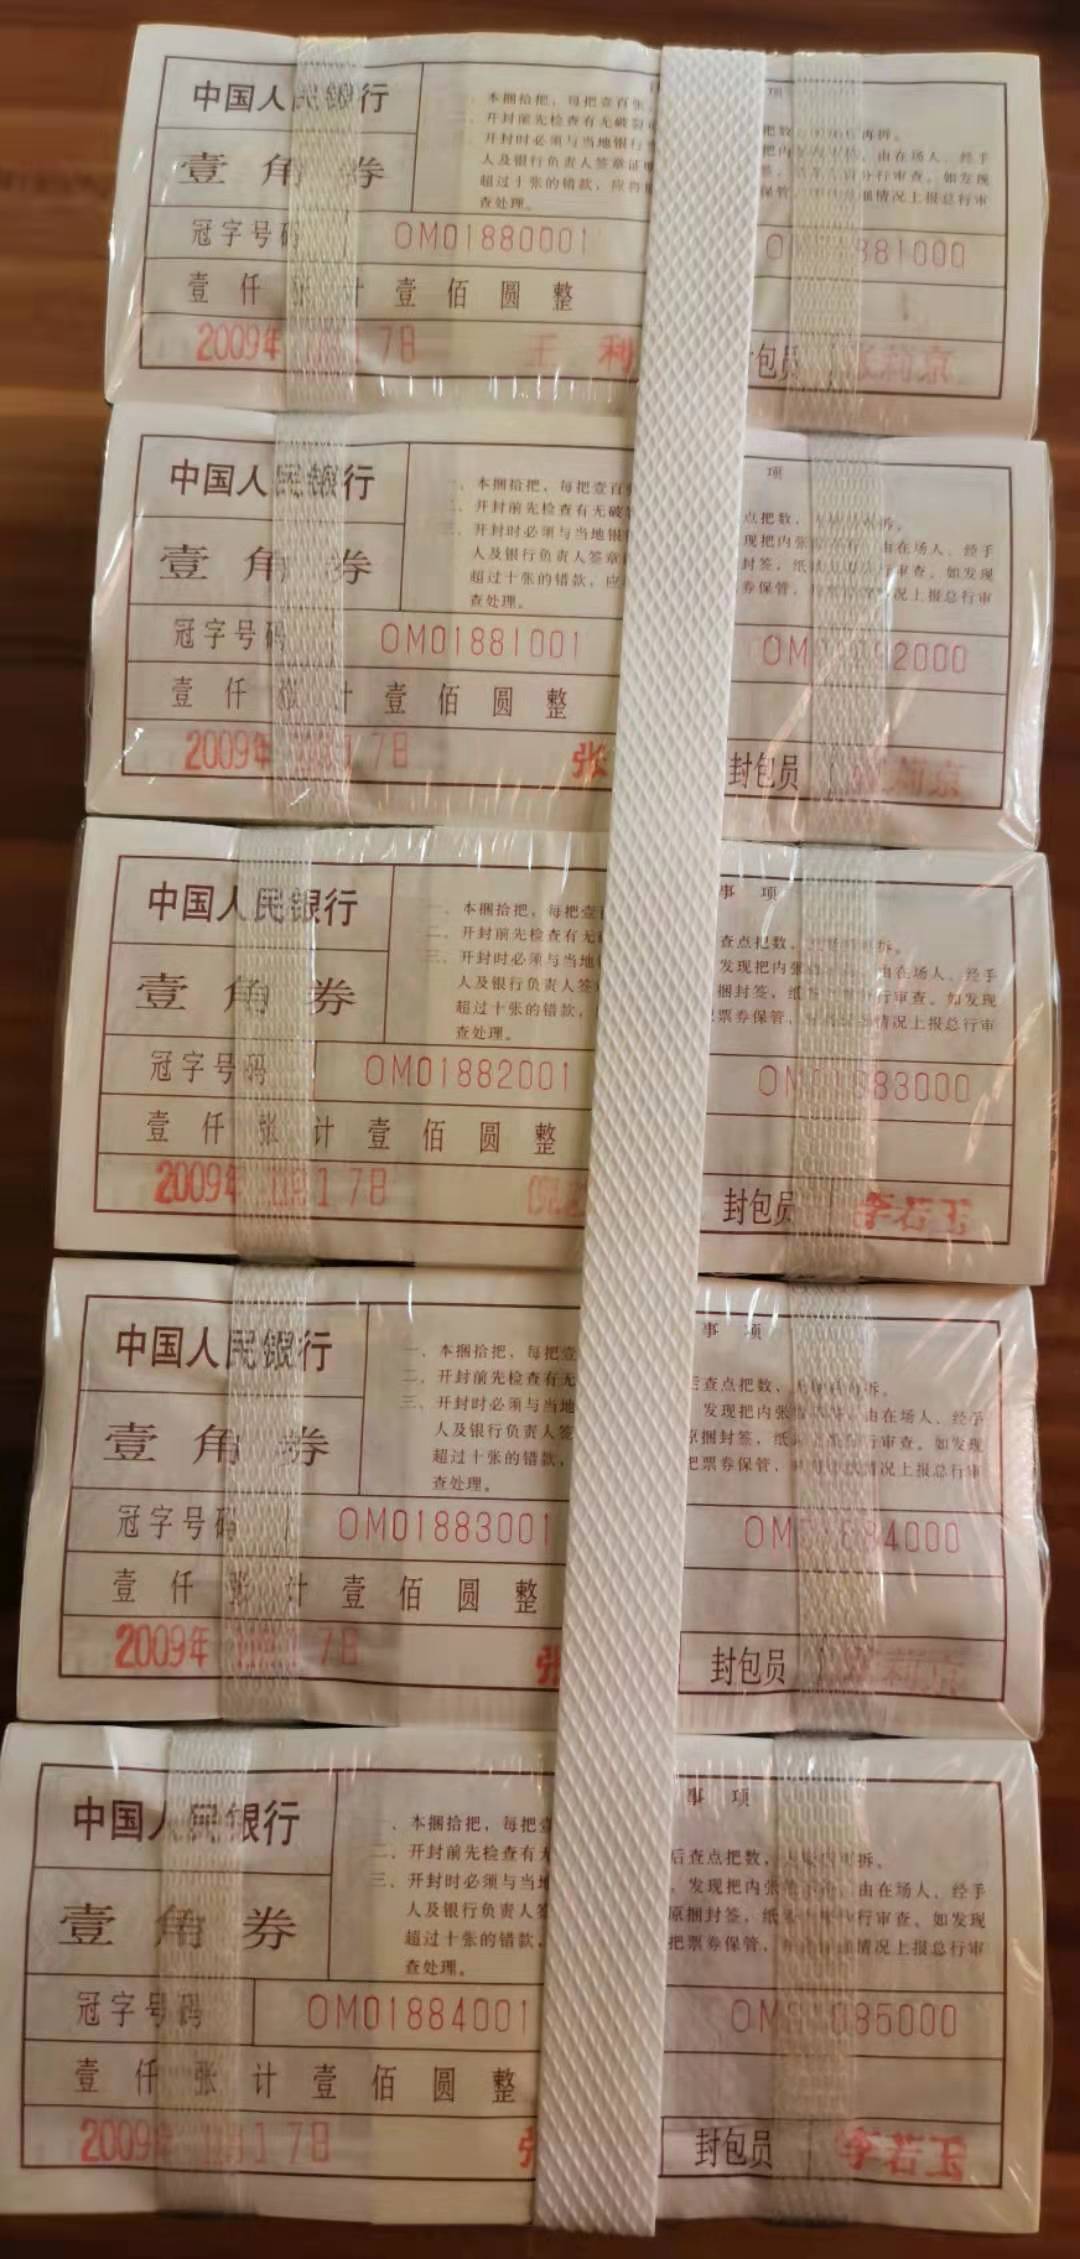 中国人民银行
壹角券
本捆拾把，每把壹百张
开封前先检查有无破
开封时必须与当地银行
人及银行负责人签章证
超过十张的错款，应将
查处理。
项
把数 再拆。
把内 由在场人、经手
行审查。如发现
保管， 情况上报总行审
冠字号码 OM01880001 OM 881000
壹仟 计壹佰圆整
2009年 17日 王利 包员 张莉京
中国人民银行
壹角券
一、本捆拾把，每把壹百
二、开封前先检查有无破
三、开封时必须与当地银
人及银行负责人签章
超过十张的错款，应
查处理。
项
点把数， 拆。
现把内张 由在场人、经手
封签，纸 行审查。如发现
券保管， 况上报总行审
冠字号码 OM01881001 OM 2000
壹仟张计壹佰圆整
2009年 17日 张 封包员 莉京
中国人民银行
壹角券
一、本捆拾把，每把壹百
二、开封前先检查有无
三、开封时必须与当地
人及银行负责人签
超过十张的错款，
查处理。
事项
查点把数， 拆。
发现把内张 由在场人、经手
捆封签，纸 行审查。如发现
票券保管， 情况上报总行审
冠字号码 OM01882001 OM 83000
壹仟张计壹佰圆整
2009年 17日 倪 封包员 李若玉
中国人民银行
壹角券
一、本捆拾把，每把壹
二、开封前先检查有无
三、开封时必须与当地
人及银行负责人签
超过十张的错款，
查处理。
事项
后查点把数， 拆。
发现把内张 由在场人、经手
原捆封签，纸 行审查。如发现
把票券保管， 情况上报总行审
冠字号码 OM01883001 OM 84000
壹仟张计壹佰圆整
2009年 17日 张 封包员 莉京
中国人民银行
壹角券
一、本捆拾把，每把壹
二、开封前先检查有
三、开封时必须与当地
人及银行负责人签
超过十张的错款，
查处理。
事项
后查点把数， 拆。
发现把内张 由在场人、经手
原捆封签，纸 行审查。如发现
把票券保管， 情况上报总行审
冠字号码 OM01884001 OM 85000
壹仟张计壹佰圆整
2009 17日 张 封包员 李若玉